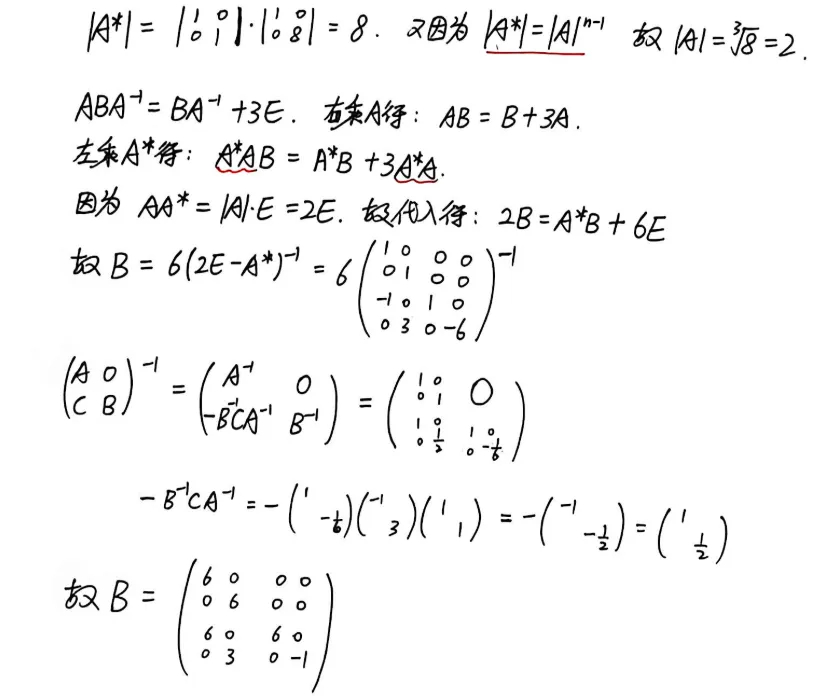 |A*| = |1 0 0 1|·|1 0 0 8| = 8. 又因为 |A*|=|A|ⁿ⁻¹ 故 |A|=³√8=2.
ABA⁻¹ = BA⁻¹+3E. 右乘A得: AB = B+3A.
左乘A*得: A*AB = A*B+3A*A.
因为 AA* = |A|·E = 2E. 故代入得: 2B = A*B+6E
故 B = 6(2E-A*)⁻¹ = 6 (1 0 0 0
0 1 0 0
-1 0 1 0
0 3 0 -6)⁻¹
(A 0
C B)⁻¹ = (A⁻¹ 0
-B⁻¹CA⁻¹ B⁻¹) = (1 0
0 1 0
1 0 1 0
0 1/2 0 -1/6)
-B⁻¹CA⁻¹ = -(1 -1/6)(-1 3)(1 1) = -(-1 -1/2) = (1 1/2)
故 B = (6 0 0 0
0 6 0 0
6 0 6 0
0 3 0 -1)